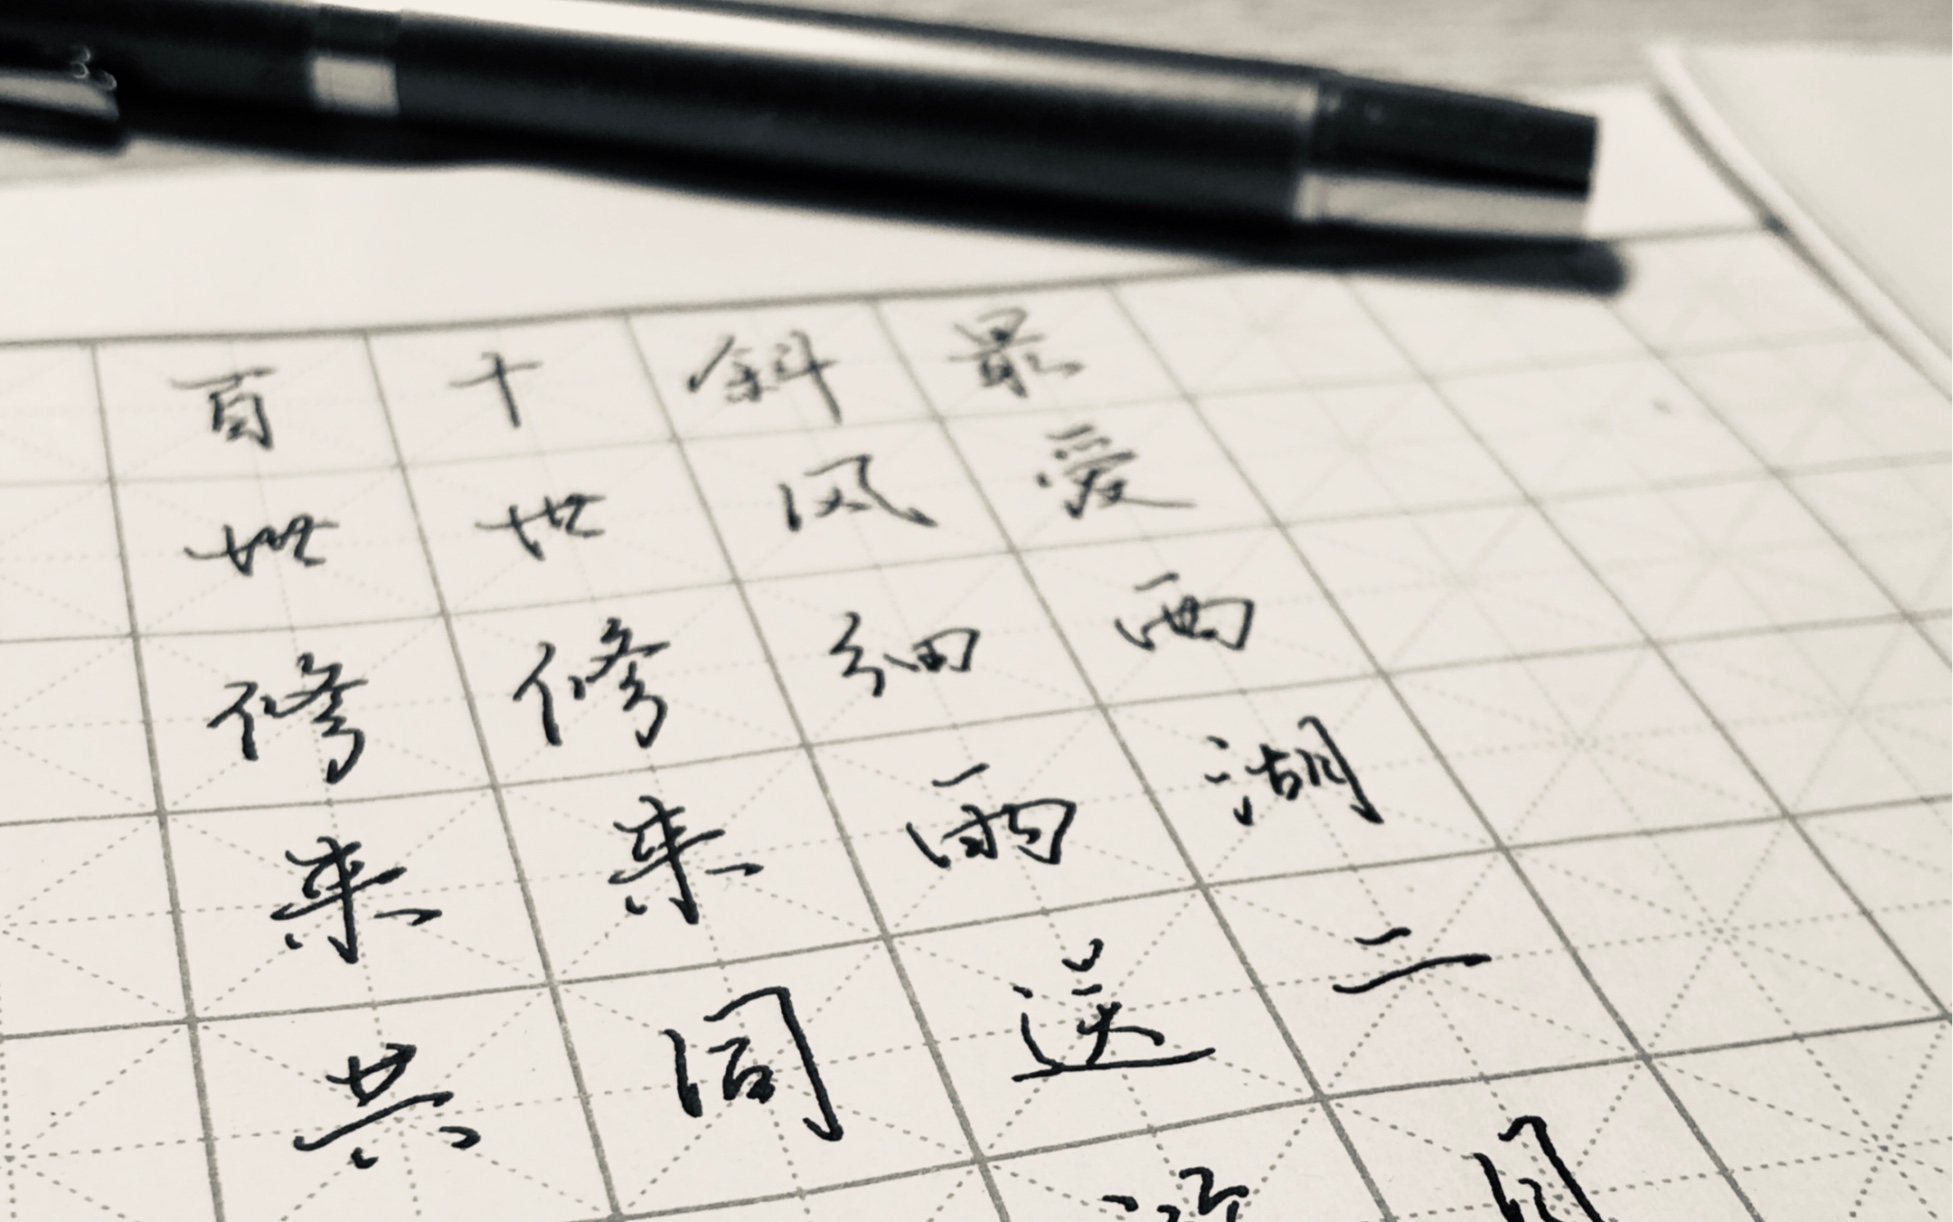 最爱西湖二月
斜风细雨送
十世修来同
百世修来共